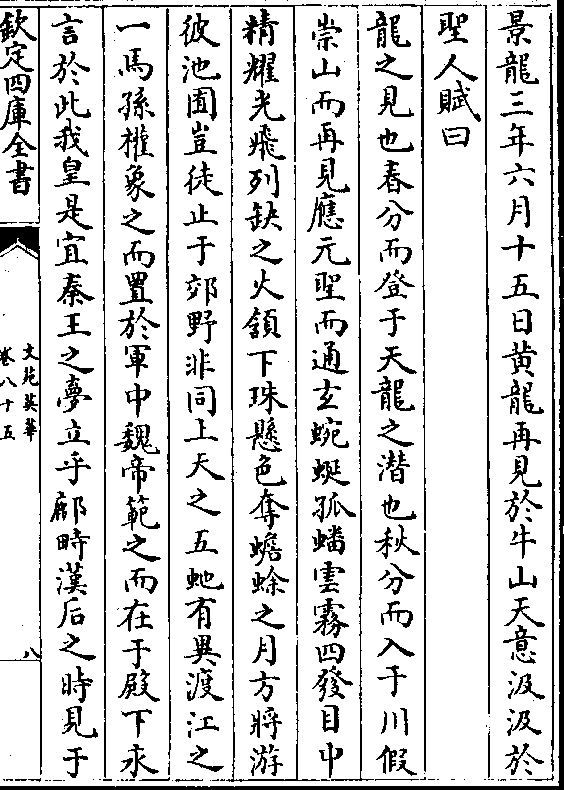 景龍三年六月十五日黄龍再見於牛山天意汲汲於
聖人賦曰
龍之見也春分而登于天龍之潜也秋分而入于川假
崇山而再見應元聖而通玄蜿蜒孤蟠雲霧四發目中
精耀光飛列缺之火頷下珠懸色奪蟾蜍之月方將游
彼池囿豈徒止于郊野非同上天之五虵有異渡江之
一馬孫權象之而置於軍中魏帝範之而在于殿下永
言於此我皇是宜秦王之夢立乎鄜畤漢后之時見于
欽定四庫全書
文苑英華
卷八十五
八